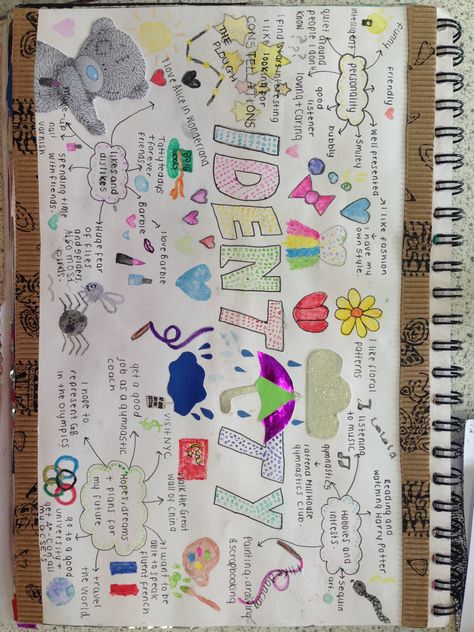 IDENTITY
personality
funny
friendly
intelligent
quiet around
people I don't
know???
good
listener
loving + caring
bubbly
Smiley
Well presented
I find stars interesting
I like looking for
CONSTELLATIONS
THE PLOUGH
I like fashion
I have my
own style.
I like floral
patterns
likes and
dislikes
I love Alice in wonderland
Tatty teddys
+ forever
friends
Barbie
I love Barbie
make-up +
nail
varnish
spending time
with friends.
Huge fear
of flies
and spiders.
Also most
birds.
Hobbies and
intrests
listening
to music
Lalala
Reading and
watching Harry Potter
sequin
art.
gymnastics
I attend Mill House
gymnastics club.
Painting, drawing
+ scrapbooking
Hopes, dreams
+ plans for
my future
get a good
job as a gymnastic
coach
I hope to
represent GB
in the olympics
VISIT NYC
walk the Great
wall of China
I want to be
able to speak
fluent french
travel
the world
go to a good
university +
get